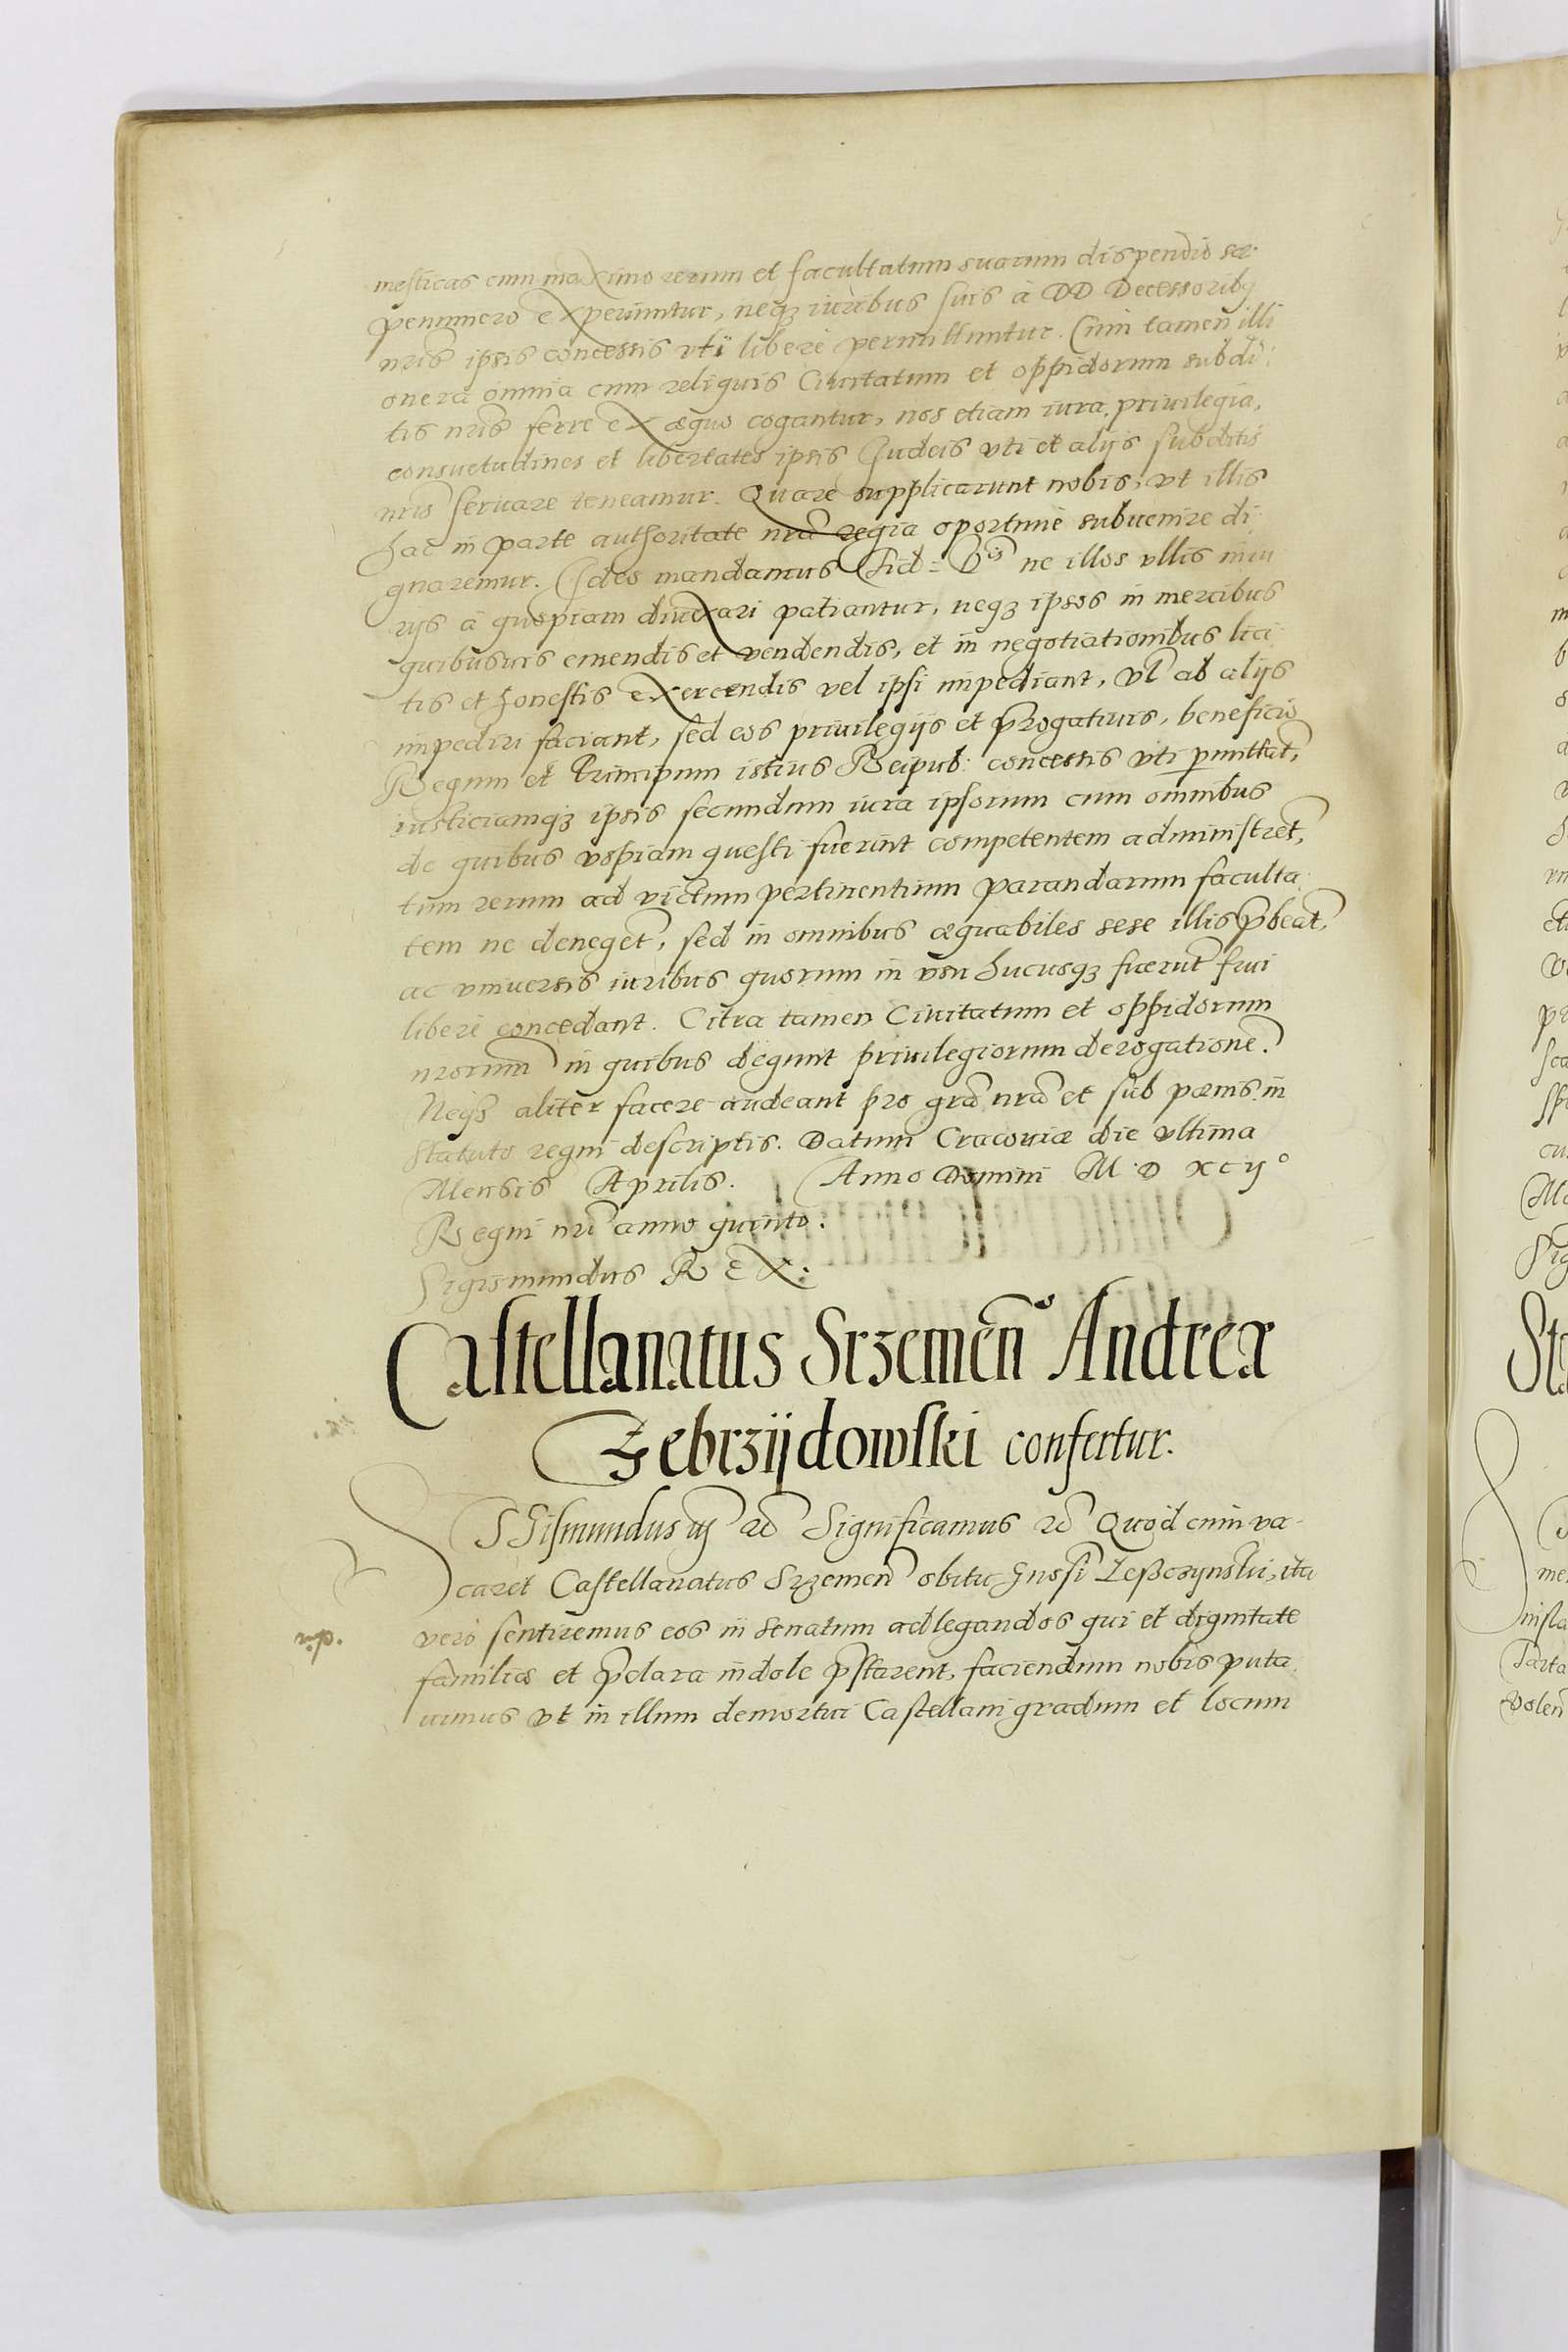 mesticas cum maximo rerum et facultatum suarum dispendio sæ-
penumero experiuntur, neqz iuribus suis à DD Decessoribz
nris ipsis concessis vti libere permittuntur. Cum tamen illi
onera omnia cum reliquis Ciuitatum et oppidorum subdi-
tis nris ferre ex æquo cogantur, nos etiam iura, priuilegia,
consuetudines et libertates ipsis Judeis vti et alijs subditis
nris seruare teneamur. Quare supplicarunt nobis, vt illis
hac in parte authoritate nra regia oportune subuenire di-
gnaremur. Ideo mandamus Fid: Vris ne illos vllis iniu
rijs à quopiam diuexari patiantur, neqz ipsos in mercibus
quibusuis emendis et vendendis, et in negotiationibus lici-
tis et honestis exercendis vel ipsi impediant, vl ab alijs
impediri faciant, sed eos priuilegijs et progatiuis, beneficio
Regum et Principum istius Reipub: concessis vti pmittat,
iusticiamqz ipsis secundum iura ipsorum cum omnibus
de quibus vspiam questi fuerint competentem administret,
tum rerum ad victum pertinentium parandarum faculta-
tem ne deneget, sed in omnibus æquabiles sese illis pbeat,
ac vniuersis iuribus quorum in vsu hucusqz fuerut frui
libere concedant. Citra tamen Ciuitatum et oppidorum
nrorum in quibus degunt priuilegiorum derogatione.
Neqz aliter facere audeant pro gra nra et sub pœnis in
statuto regni descriptis. Datum Cracouiæ die vltima
Mensis Aprilis. Anno Domini M D XC ij°
Regni nri anno quinto.
Sigismundus REX.
Castellanatus Srzemen Andreæ
Zebrzijdowski confertur.
SIGismundus iij etc Significamus etc Quod cum va-
caret Castellanatus Srzemen obitu Gnosi Leßczynskii, ita
vero sentiremus eos in senatum adlegandos qui et dignitate
familiæ et pclara indole pstarent, faciendum nobis puta
uimus vt in illum demortui Castellani gradum et locum